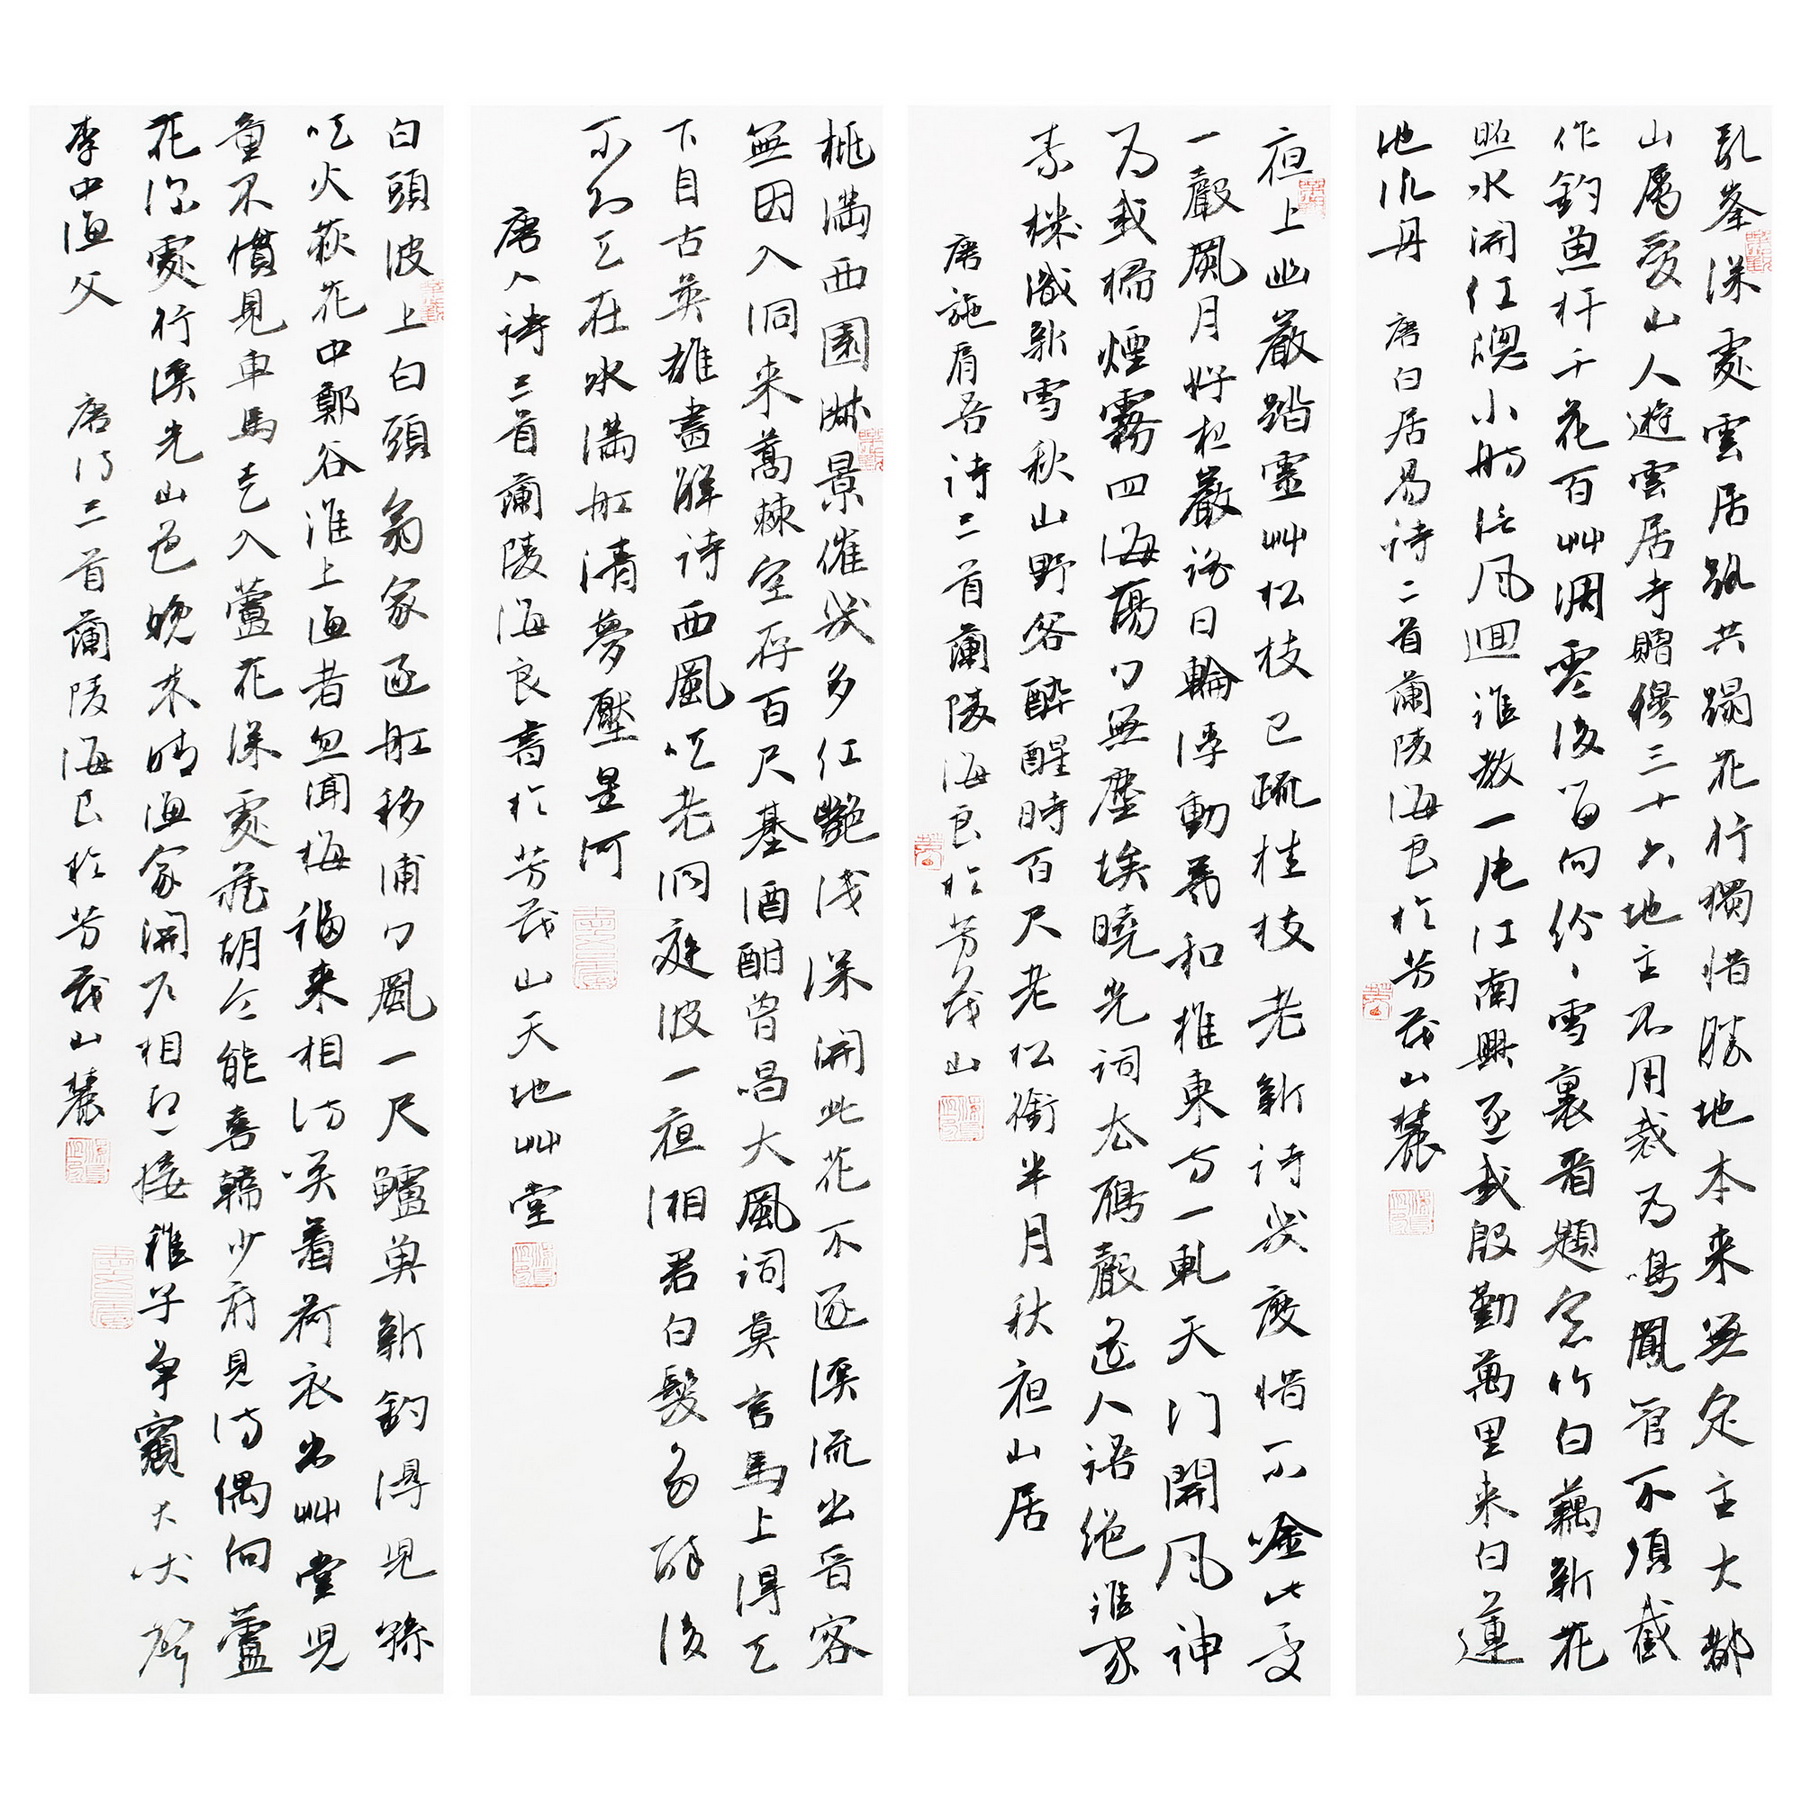 亂峯深處雲居路共蹋花行獨惜勝地本來無定主大都
山屬愛山人遊雲居寺贈穆三十六地主不用裁為鳴鳳管不須截
作釣魚杆千花百艸凋零後留向紛紛雪裏看題窓竹白藕新花
照水開紅窓小舫信風迴誰教一片江南興逐我殷勤萬里來白蓮
池汎舟
唐白居易詩二首蘭陵海良於芳茂山麓
夜上幽巖踏靈艸松枝已疏桂枝老新詩幾度惜不吟此處
一聲風月好松巖認日輪浮動羃和推東方一軋天門開風神
為我掃煙霧四海蕩蕩無塵埃曉光詞去雁聲遥人語絕誰家
素機織新雪秋山野客醉醒時百尺老松銜半月秋夜山居
唐施肩吾詩三首蘭陵海良於芳茂山
桃滿西園淑景催幾多紅艷淺深開此花不逐溪流出晉客
無因入洞來蒿棘空存百尺基酒酣曾唱大風詞莫言馬上得天
下自古英雄盡解詩西風吹老洞庭波一夜湘君白髮多醉後
不知天在水滿舡清夢壓星河
唐人詩三首蘭陵海良書於芳茂山天地艸堂
白頭波上白頭翁家逐舡移浦浦風一尺鱸魚新釣得兒孫
吹火荻花中鄭谷淮上漁者忽聞梅福來相訪笑着荷衣出艸堂兒
童不慣見車馬走入蘆花深處藏胡令能喜韓少府見訪偶向蘆
花深處行溪光山色晚來晴漁家開戶相迎接稚子爭窺犬吠聲
李中漁父
唐詩三首蘭陵海良於芳茂山麓